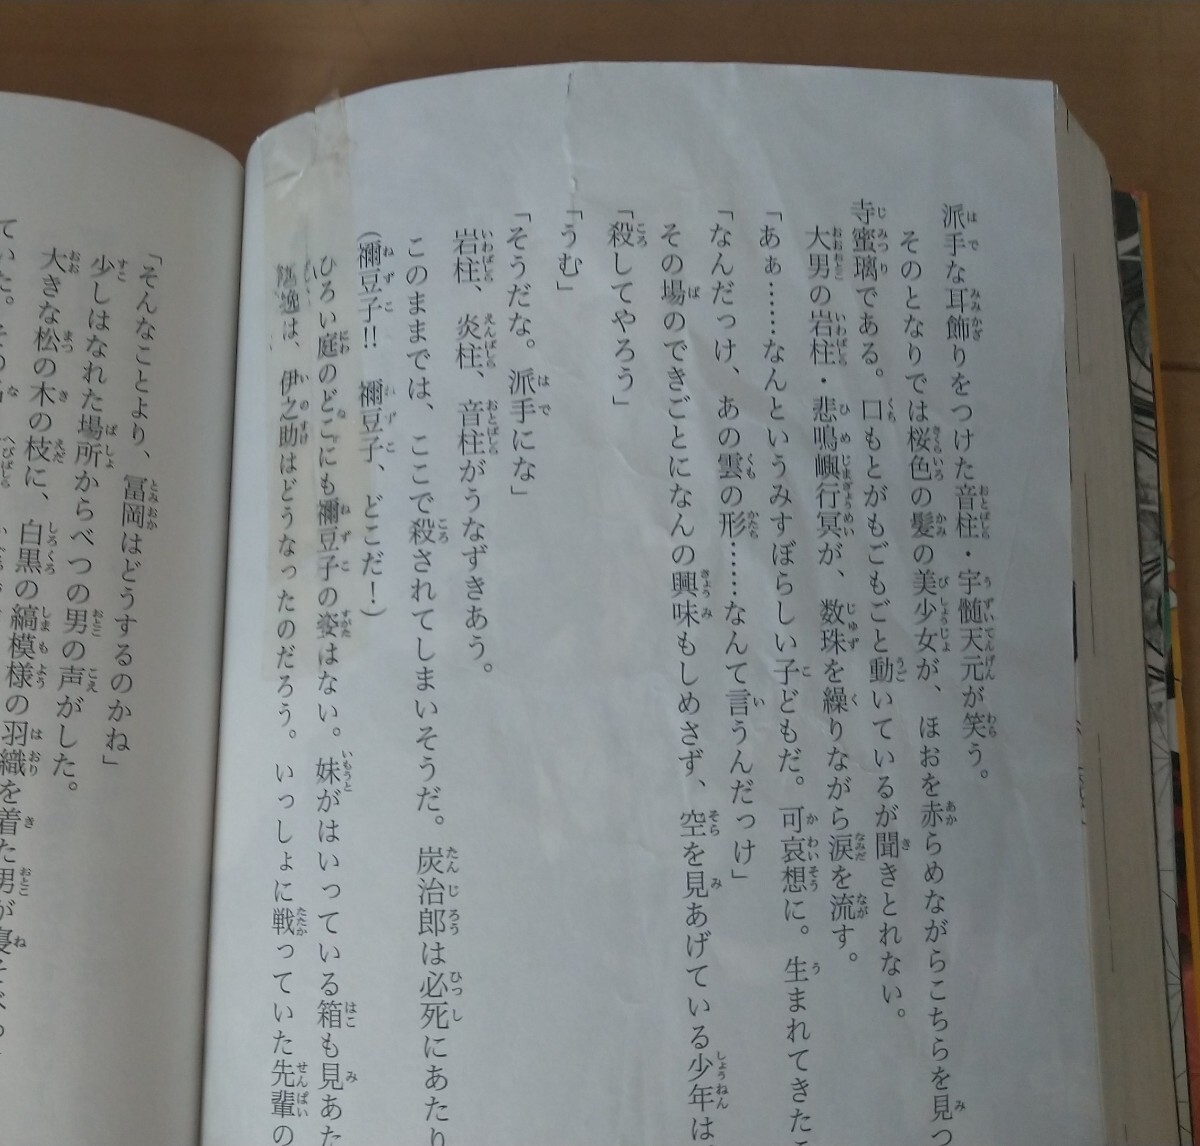 派手な耳飾りをつけた音柱・宇髄天元が笑う。
そのとなりでは桜色の髪の美少女が、ほおを赤らめながらこちらを見つ
寺蜜璃である。口もとがもごもごと動いているが聞きとれない。
大男の岩柱・悲鳴嶼行冥が、数珠を繰りながら涙を流す。
「あぁ……なんというみすぼらしい子どもだ。可哀想に。生まれてきたこ
「なんだっけ、あの雲の形……なんて言うんだっけ」
その場のできごとになんの興味もしめさず、空を見あげている少年は
「殺してやろう」
「うむ」
「そうだな。派手にな」
岩柱、炎柱、音柱がうなずきあう。
このままでは、ここで殺されてしまいそうだ。炭治郎は必死にあたり
(禰豆子!! 禰豆子、どこだ!)
ひろい庭のどこにも禰豆子の姿はない。妹がはいっている箱も見あた
逸は、伊之助はどうなったのだろう。いっしょに戦っていた先輩の
「そんなことより、冨岡はどうするのかね」
少しはなれた場所からべつの男の声がした。
大きな松の木の枝に、白黒の縞模様の羽織を着た男が寝そべっ
ていた。その